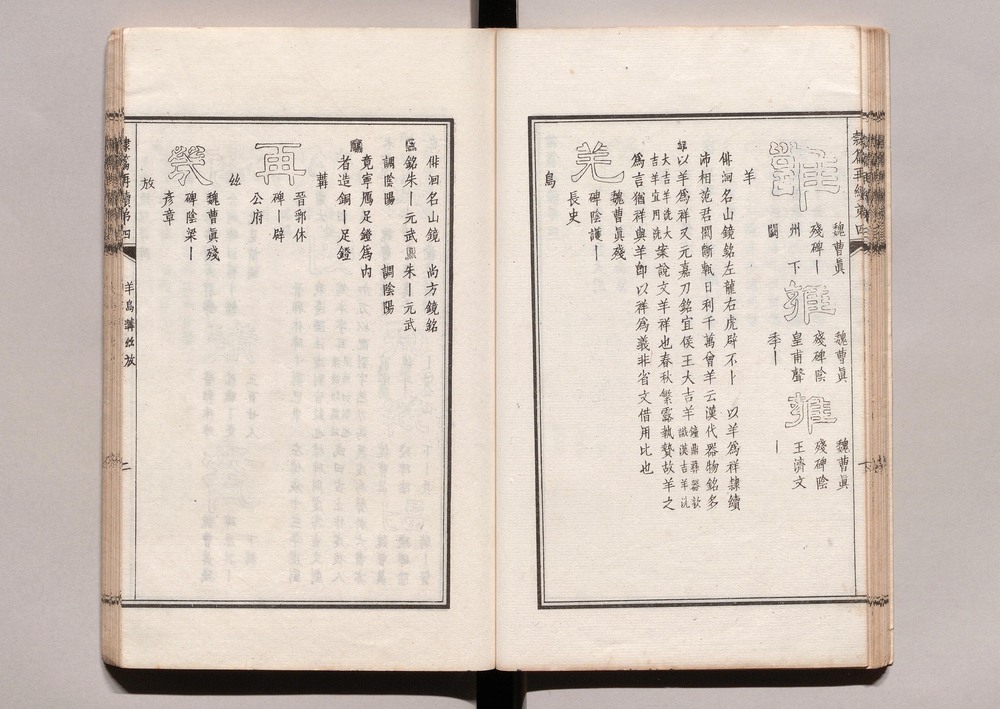 隸篇再續第四
魏曹眞
殘碑丨
州下
闕
魏曹眞
殘碑陰
皇甫聲
季丨
魏曹眞
殘碑陰
王濟文
丨
羊
俳洄名山鏡銘左龍右虎辟不丨 以羊爲祥隸續
沛相范君闕斷𨋎日利千萬曾羊云漢代器物銘多
以羊爲祥又元嘉刀銘宜侯王大吉羊鐘鼎彝器款識漢吉羊洗
大吉羊洗大吉羊宜用洗案說文羊祥也春秋繁露執贄故羊之
爲言猶祥與羊卽以祥爲義非省文借用比也
羌
魏曹眞殘
碑陰護丨
長史
鳥
俳洄名山鏡 尚方鏡銘
銘朱丨元武 朱丨元武
調陰陽 調陰陽
竟寧鴈足鐙爲内
者造銅丨足鐙
冓
再
晉郛休
碑丨辟
公府
丝
魏曹眞殘
碑陰梁丨
彥章
放
隸篇再續第四
羊鳥冓丝放
二